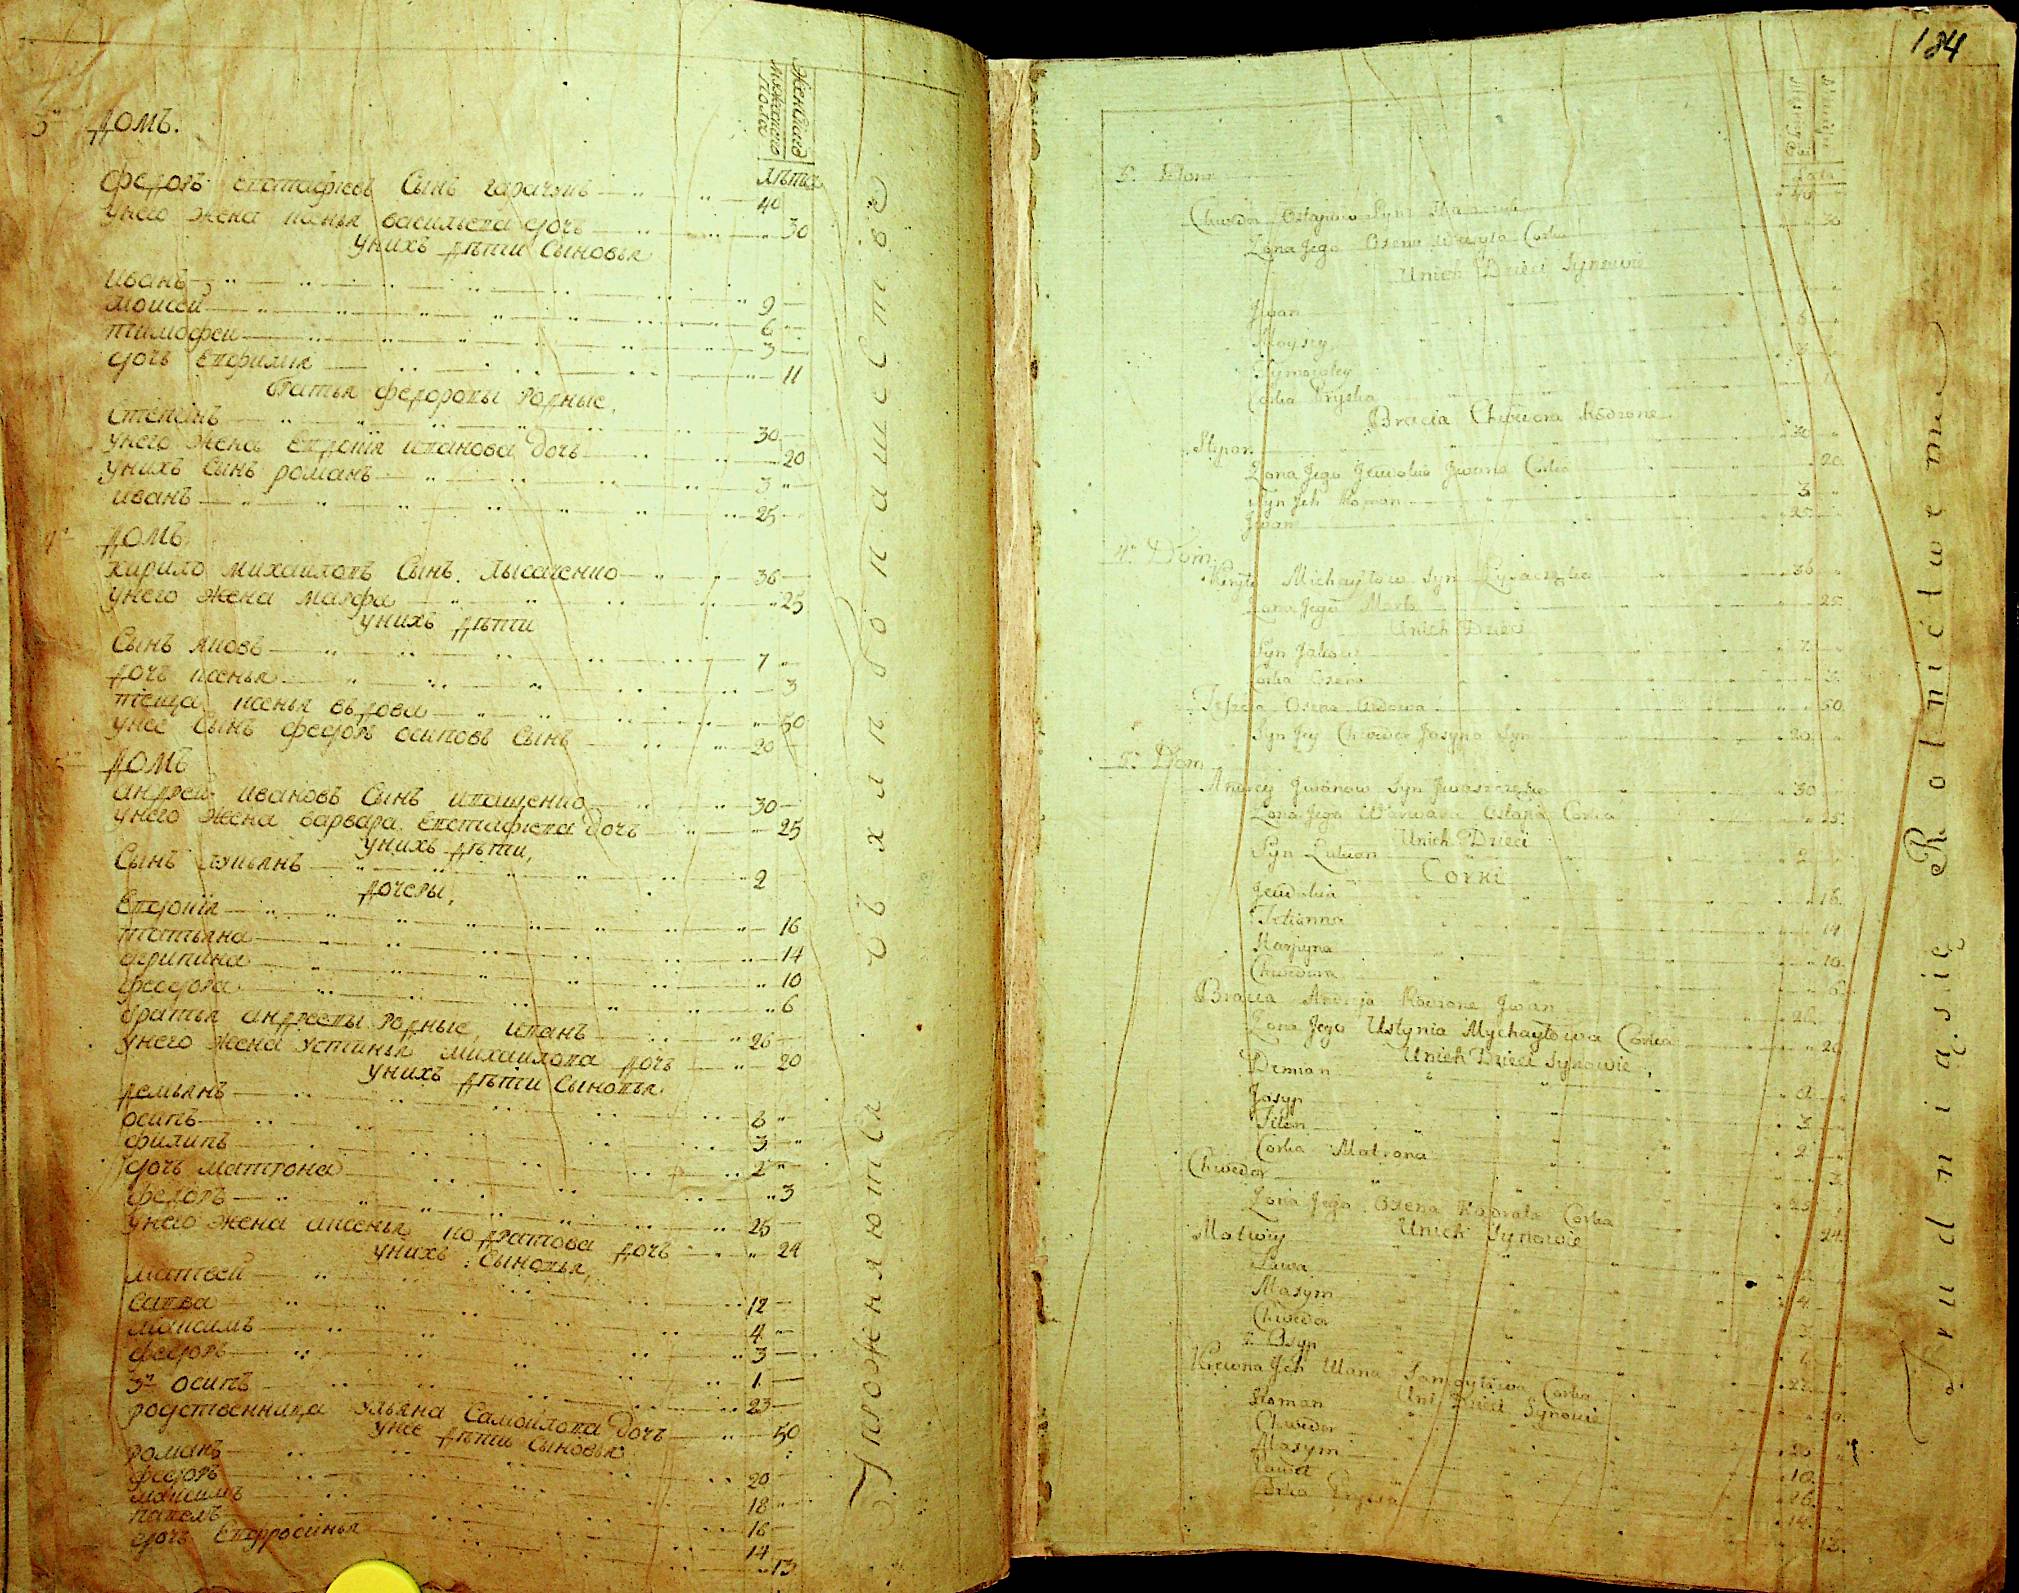 3 й Домъ.
Женска
мужеска
Пола
Лѣта
Федоръ Евстафіевъ Сынъ 40
Унего жена васильева дочъ 30
Унихъ дѣти Сыновья
иванъ 9
моисей 6
тимофей 3
дочъ Евфимія 11
братья федоровы родные,
Степанъ 30
Унего жена Евдокія иванова дочъ 20
Унихъ Сынъ романъ 3
иванъ 25
4 Домъ
кирило михайловъ Сынъ Лысаченко 36
Унего жена марфа 25
Унихъ дѣти
Сынъ яковъ 7
дочъ ксенья 3
теща ксенья вдова 50
Унее Сынъ федоръ осиповъ Сынъ 20
Домъ
андрей ивановъ Сынъ иващенко 30
Унего жена варвара Евстафіева дочъ 25
Унихъ дѣти,
Сынъ лукьянъ 2
дочеры,
Евдокія 16
татьяна 14
10
федора 6
братья андреевы родные, иванъ 26
Унего жена устинья михайлова дочъ 20
Унихъ дѣти Сыновья
демьянъ 8
осипъ 3
филипъ 2
дочъ матрона 3
федоръ 25
Унего жена аксенья кодратова дочъ 24
Унихъ Сыновья,
матвей 12
савва 4
максимъ 3
федоръ 1
3й осипъ 23
родственница ульяна Самойлова дочъ 50
Унее дѣти Сыновья
романъ 20
федоръ 18
максимъ 16
павелъ 14
дочъ Евфросинья 13
Упражняются въ хлѣбопашествѣ
184
Lata
Chwedor Ostapow Syn 40
Zona Jego Osena Wasyla Corka 30
Unich Dzieci Synowie
Jwan
Moysey 6
Tymofiey
Corka Pryska
Bracia Chwedora Rodzone
Stepan 30
Zona Jego Jewdokia Jwana Corka 20
Syn Jch Roman 3
Jwan 25
4. Dom
Kiryło Michayłow Syn Łysaczenko 36
Zona Jego Marta 25
Unich Dzieci
Syn Jakow 7
Corka Osena 3
Teszcza Osena Wdowa 50
Syn Jey Chwedor Josypa Syn 20
5. Dom
Andrey Jwanow Syn Jwaszczenko 30
Zona Jego Warwara Ostapa Corka 25
Unich Dzieci
Syn Lukian 2
Corki
Jewdokia 16
Tetianna 14
10
Chwedora 6
Bracia Andreja Rodzone Jwan 26
Zona Jego Ustynia Mychayłowa Corka 20
Unich Dzieci Synowie
Demian 8
Josyp 3
Filon 2
Corka Matrona 3
Chwedor 25
Zona Jego Osena Kodrata Corka 24
Unich Synowie
Matwiy
Sawa 4
Maxym 3
Chwedor 1
3. Osyp 23
Krewna Jch Uliana Samoyłowa Corka
Uniey Dzieci Synowie
Roman 20
Chwedor
Maxym 16
Paweł 14
Corka Pryska 13
Trudnią się Rolnictwem